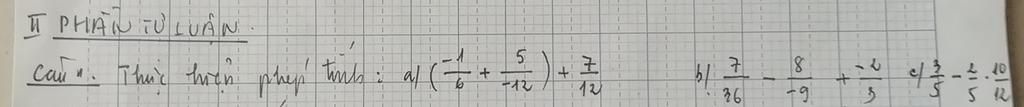 II PHẦN TỰ LUẬN.
Câu 1. Thực hiện phép tính: a/ (-1/6 + 5/-12) + 7/12 b/ 7/36 - 8/-9 + -2/3 c/ 3/5 - 2/5 . 10/12